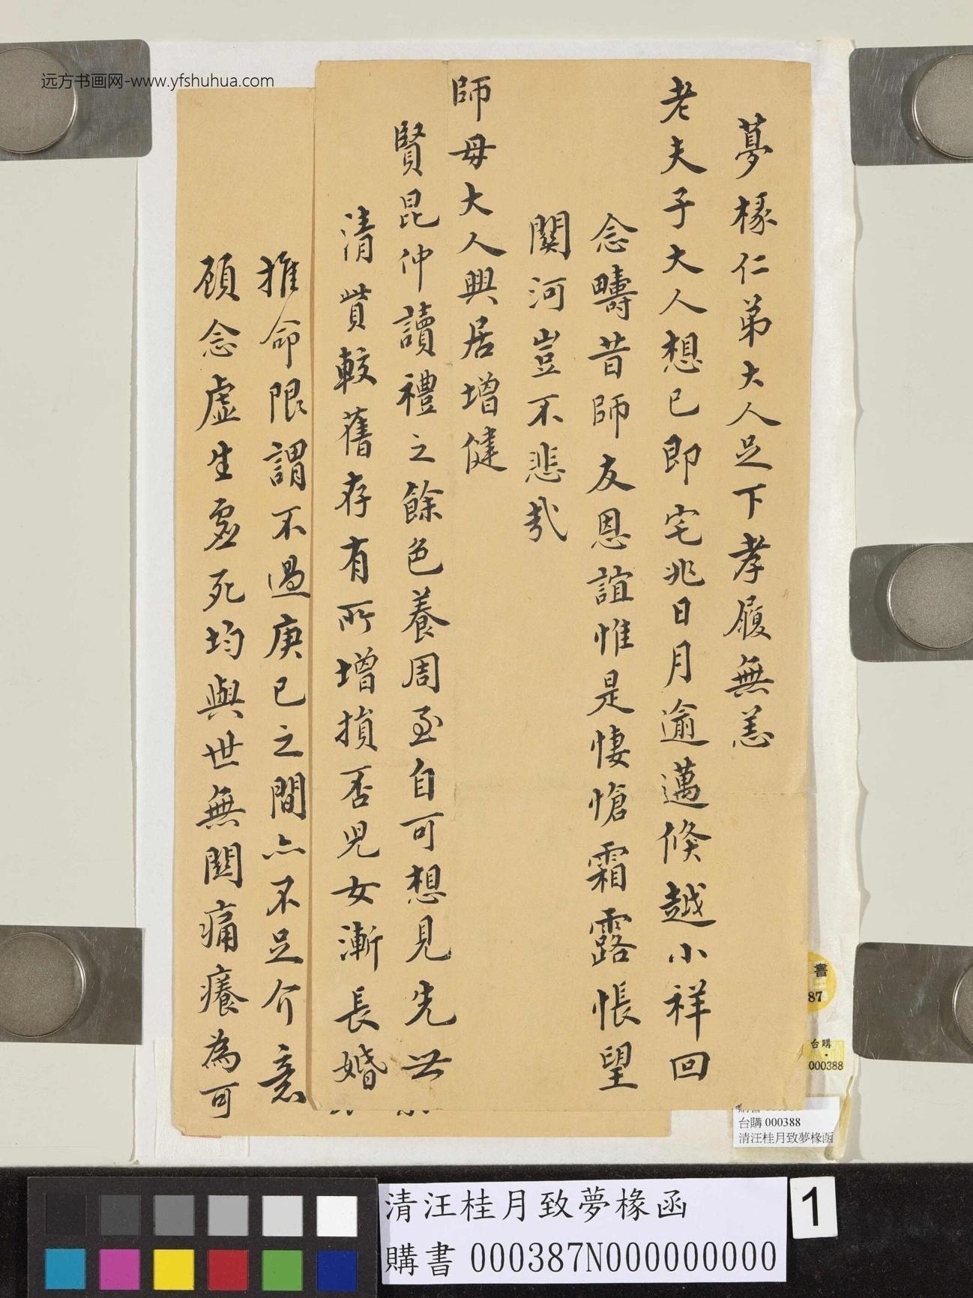 远方书画网-www.yfshuhua.com
夢椽仁弟大人足下孝履無恙
老夫子大人想已即宅兆日月逾邁倏越小祥回
念疇昔師友恩誼惟是悽愴霜露悵望
關河豈不悲哉
師母大人興居增健
賢昆仲讀禮之餘色養周至自可想見先世
清貲較舊存有所增損否兒女漸長婚
推命限謂不過庚巳之間亦不足介意
顧念虛生虛死均與世無關痛癢為可
書
87
台購
000388
台購 000388
清汪桂月致夢椽函
清汪桂月致夢椽函
購書 000387N000000000
1